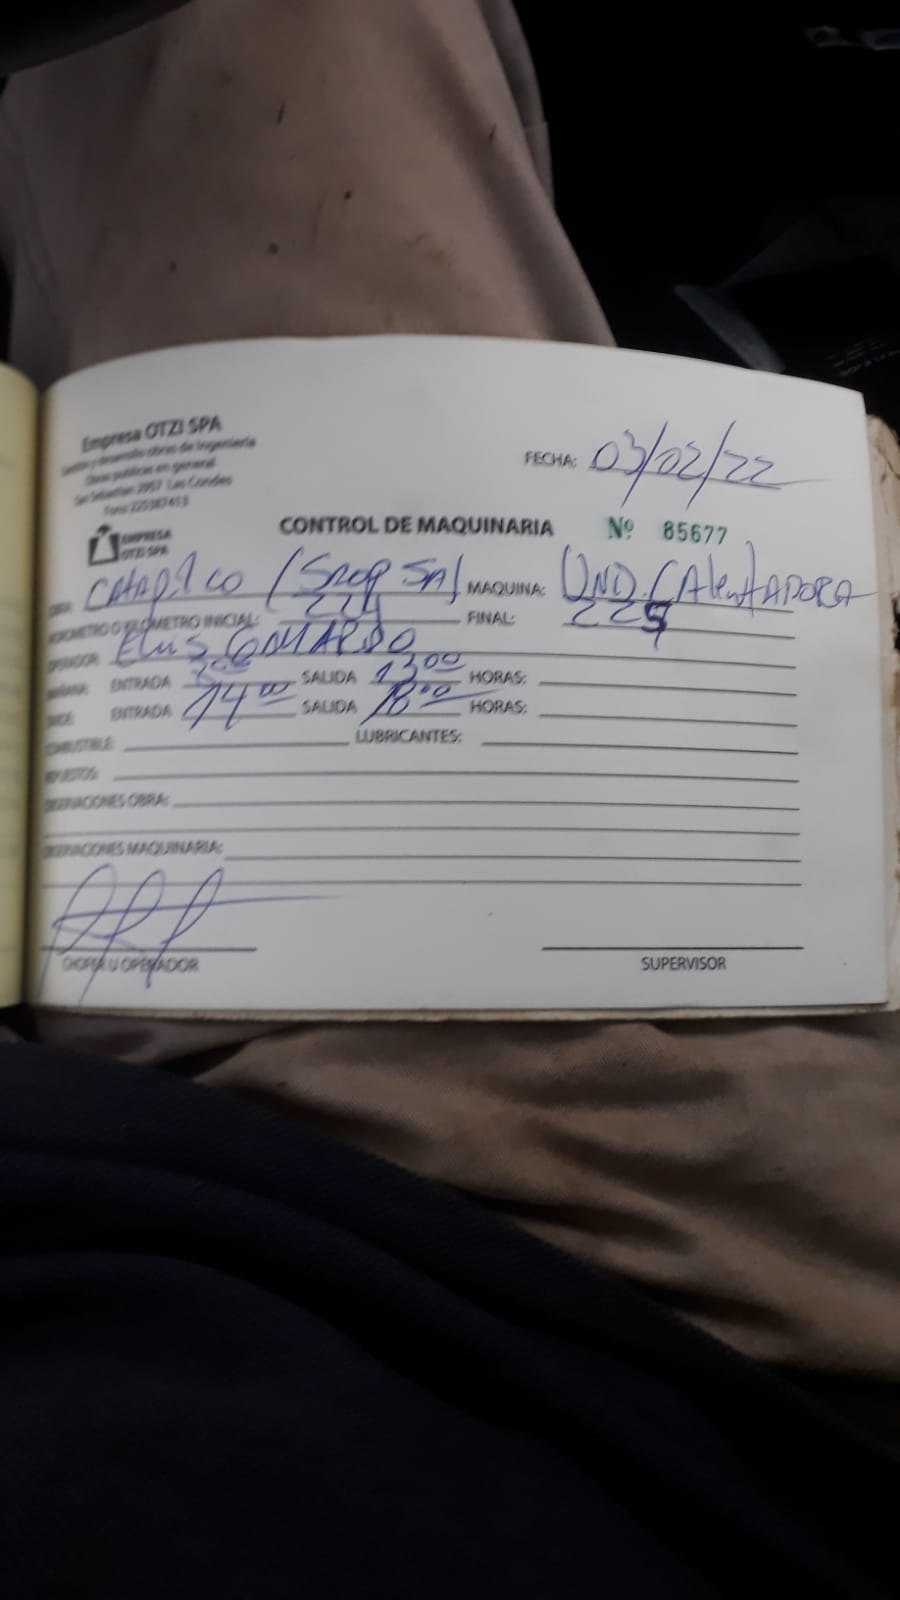 Empresa OTZI SPA
Gestión y desarrollo obras de Ingeniería
Obras publicas en general
San Sebastian 2957 Las Condes
Fono: 225987413
FECHA: 03/02/22
EMPRESA
OTZI SPA
CONTROL DE MAQUINARIA Nº 85677
OBRA: CATAPILCO MAQUINA: UND. CALENTADORA
HOROMETRO O KILOMETRO INICIAL: 224 FINAL: 225
OPERADOR:
MAÑANA: ENTRADA SALIDA 13 00 HORAS:
TARDE: ENTRADA 14 00 SALIDA 18 00 HORAS:
COMBUSTIBLE: LUBRICANTES:
REPUESTOS:
OBSERVACIONES OBRA:
OBSERVACIONES MAQUINARIA:
CHOFER U OPERADOR SUPERVISOR